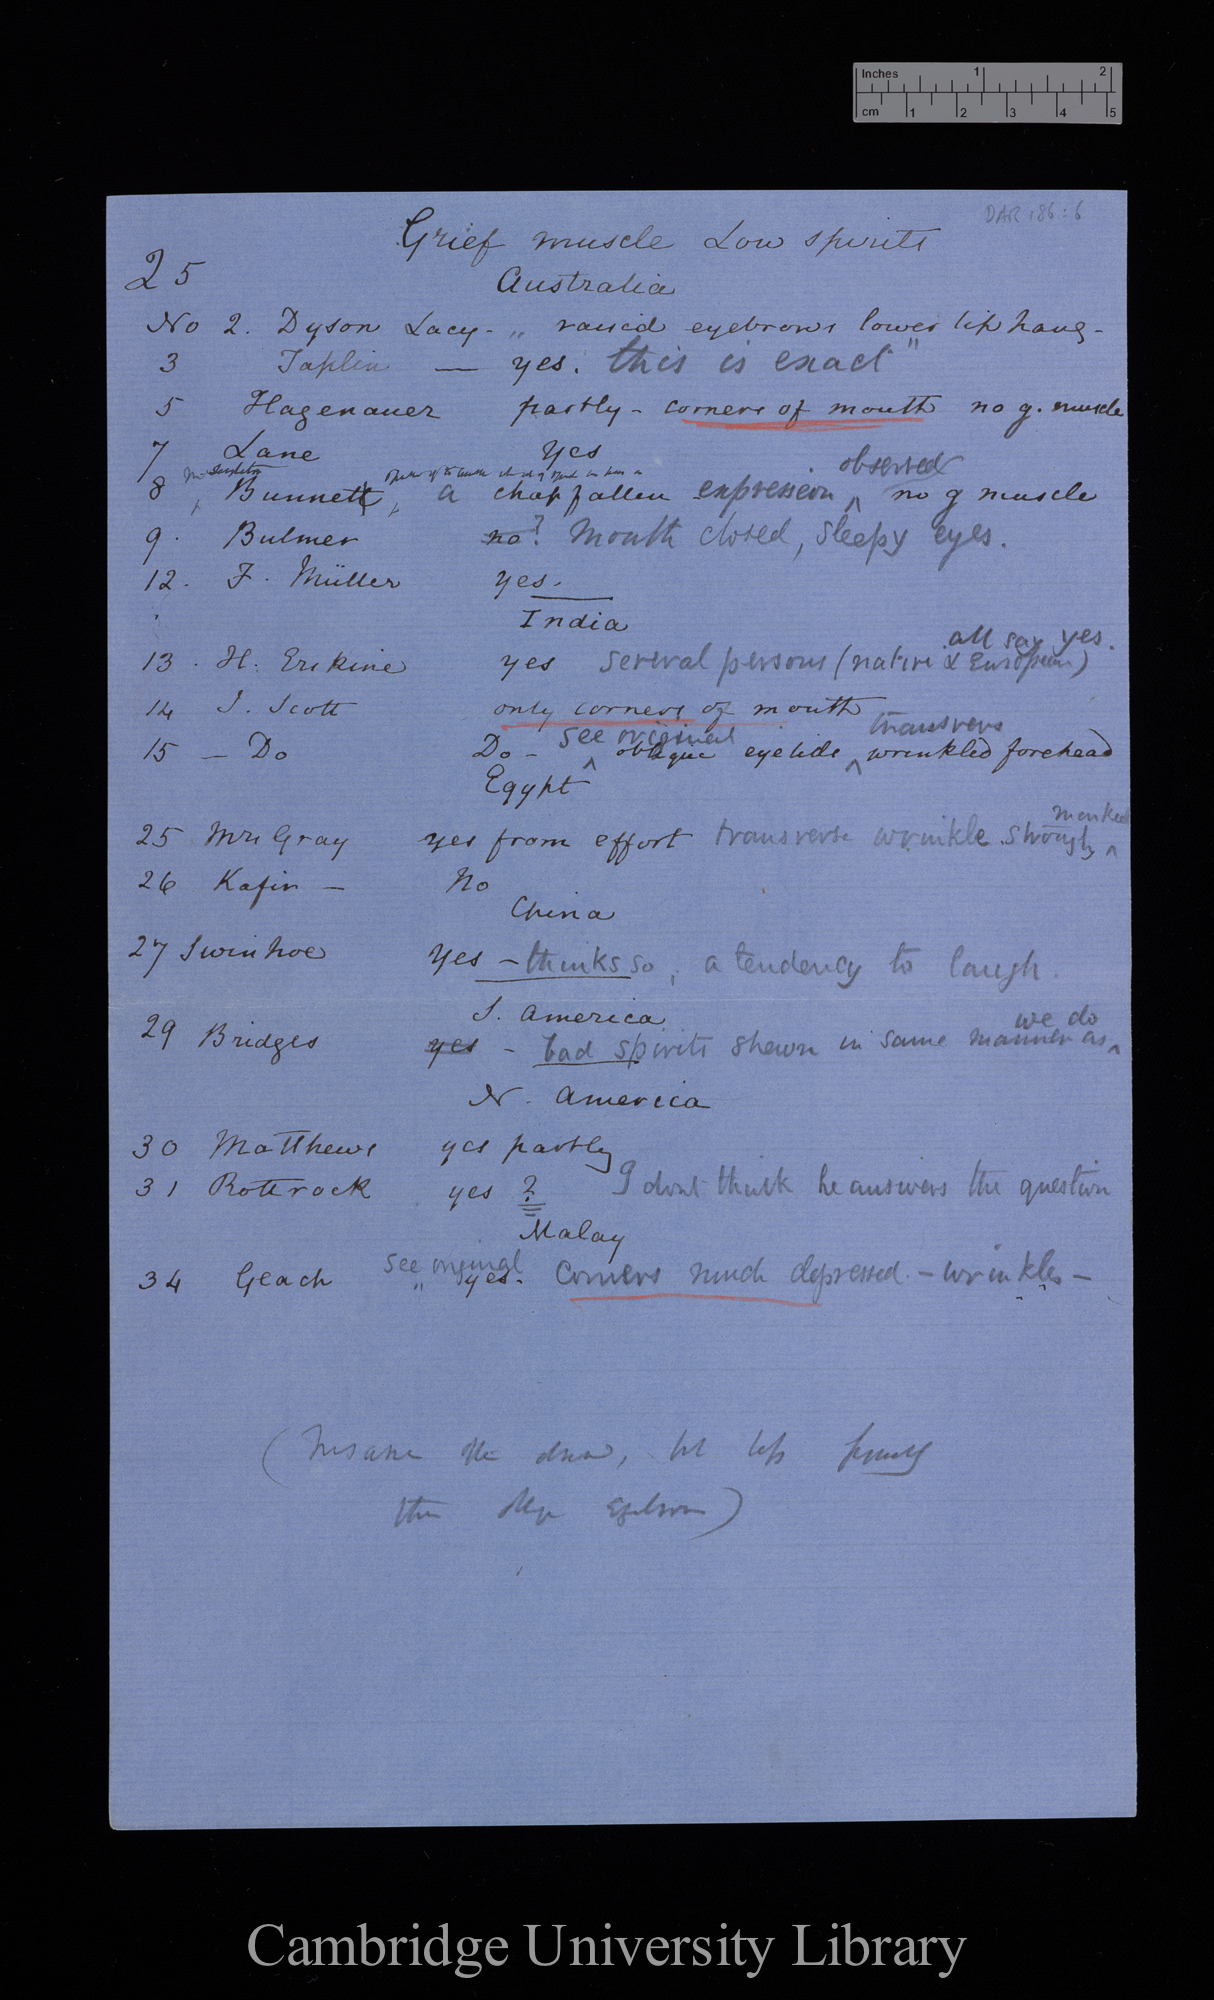 Inches 1 2
cm 1 2 3 4 5
DAR 186:6
Grief muscle Low spirits
25
Australia
No 2. Dyson Lacy - „ raised eyebrows lower lip hang -
3 Taplin — yes. this is exact"
5 Hagenauer partly - corners of mouth no g. muscle
7 Lane Yes
8 Bunnett, a chapfallen expression observed no g muscle
9. Bulmer no? Mouth closed, sleepy eyes.
12. F. Müller yes.
India
all say yes.
13. H. Erskine yes several persons (native & European)
14 J. Scott only corners of mouth
15 - Do Do - see original oblique eyelids transvers wrinkled forehead
Egypt
25 Mrs Gray yes from effort transverse wrinkle strongly marked
26 Kafir - No
China
27 Swinhoe Yes - thinks so, a tendency to laugh.
S. America
29 Bridges yes - bad spirits shewn in same manner as we do
N. America
30 Matthews yes partly
31 Rothrock yes ? I dont think he answers the question
Malay
34 Geach see original „ yes. Corners much depressed - wrinkles -
(Insane
Cambridge University Library